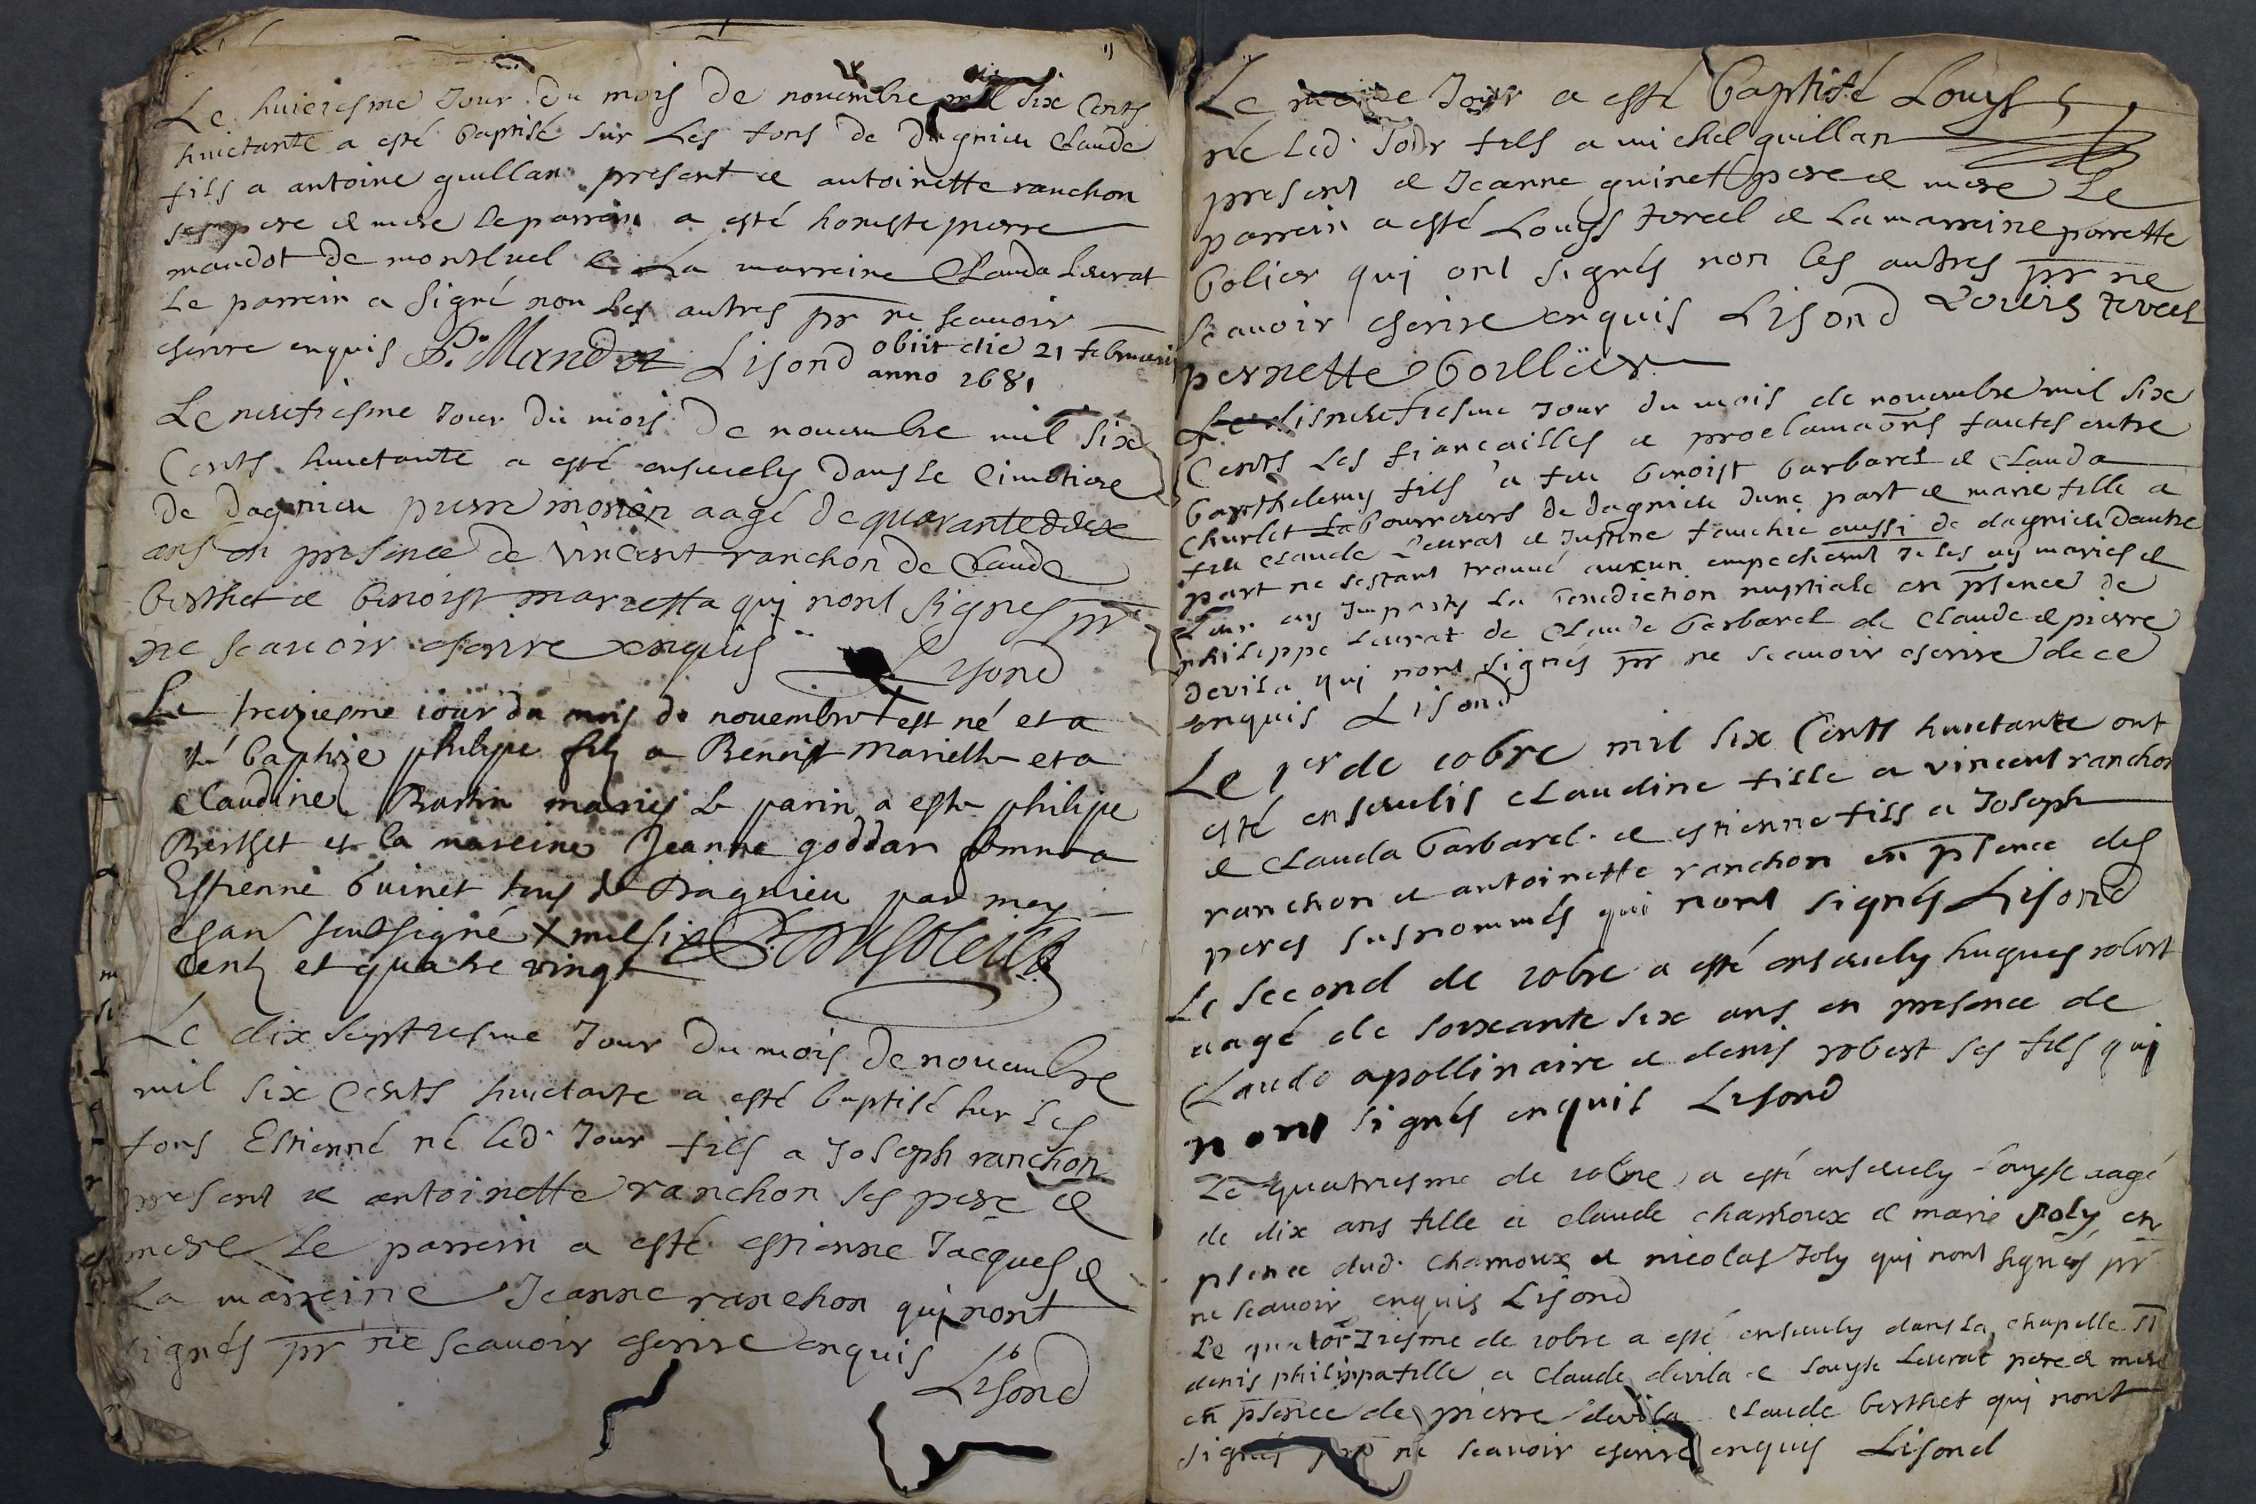 Le huictesme Jour du mois de novembre mil six Cents
huictante a esté baptisé sur Les fons de dagnieu Claude
fils a antoine guillan present et antoinette ranchon
ses pere et mere le parrein a esté honeste pierre
mandot de montluel et La marreine Clauda Leurat
Le parrein a signé non Les autres pr ne scavoir
escrire enquis P. Mandot Lisond obiit die 21 februarii
anno 1681
Le neufiesme Jour du mois de novembre mil six
Cents huictante a esté ensevely dans le Cimetiere
de dagnieu pierre aagé de quarante deux
ans en presence de vincent ranchon de Claude
berthet et benoist marietta qui nont signes pr
ne scavoir escrire enquis
Lisond
Le treiziesme iour du mois de novembre est né et a
esté baptize philipe fils a Benoist Mariette et a
Claudine mariés Le parin a esté philipe
Berthet et la mareine Jeanne goddan femme a
Estienne Guinet tous de Dagnieu par moy
soubsigné X mil six
cents et quatre vingt
Le dix septiesme Jour du mois de novembre
mil six Cents huictante a esté baptisé sur Les
fons Estienne né led. Jour fils a Joseph ranchon
present et antoinette ranchon ses pere et
mere Le parrein a esté estienne Jacques et
La marreine Jeanne ranchon qui nont
signés pr ne scavoir escrire enquis
Lisond
Le mesme Jour a esté baptisé Louys
né led. Jour fils a michel guillan
present et Jeanne guinet pere et mere Le
parrein a esté Louys tercel et La marreine perrette
bolier qui ont signés non les autres pr ne
scavoir escrire enquis Lisond Louis tercel
pernette boullier
Le disneufiesme Jour du mois de novembre mil six
Cents Les fiancailles et proclamaons faictes entre
barthelemy fils a feu benoist barbaret et Clauda
Churlet Laboureurs de dagnieu dune part et marie fille a
feu Claude Leurat et Justine fauchie aussi de dagnieu dautre
part ne sestant trouvé aucun empechemt Je les ay mariés et
Leur ay Imparty La benediction nuptiale en psence de
philippe Leurat de Claude barbaret de Claude et pierre
devila qui nont signés pr ne scavoir escrire de ce
enquis Lisond
Le 1er de xobre mil six Cents huictante ont
esté ensevelis Claudine fille a vincent ranchon
et Clauda barbaret et estienne fils a Joseph
ranchon et antoinette ranchon en psence des
peres susnommés qui nont signés Lisond
Le second de xobre a esté ensevely hugues robert
aagé de soixante six ans en presence de
Claude apollinaire et denis robert ses fils qui
nont signés enquis Lisond
Le quatriesme de xobre a esté ensevely Louyse aagé
de dix ans fille a claude chamoux et marie Joly en
psence dud. Chamoux et nicolas Joly qui nont signés pr
ne scavoir enquis Lisond
Le quatorziesme de xobre a esté ensevely dans La chapelle St
denis philippa fille a Claude devila et Louyse Leurat pere et mere
en psence de pierre devila claude berthet qui nont
signés pr ne scavoir escrire enquis Lisond